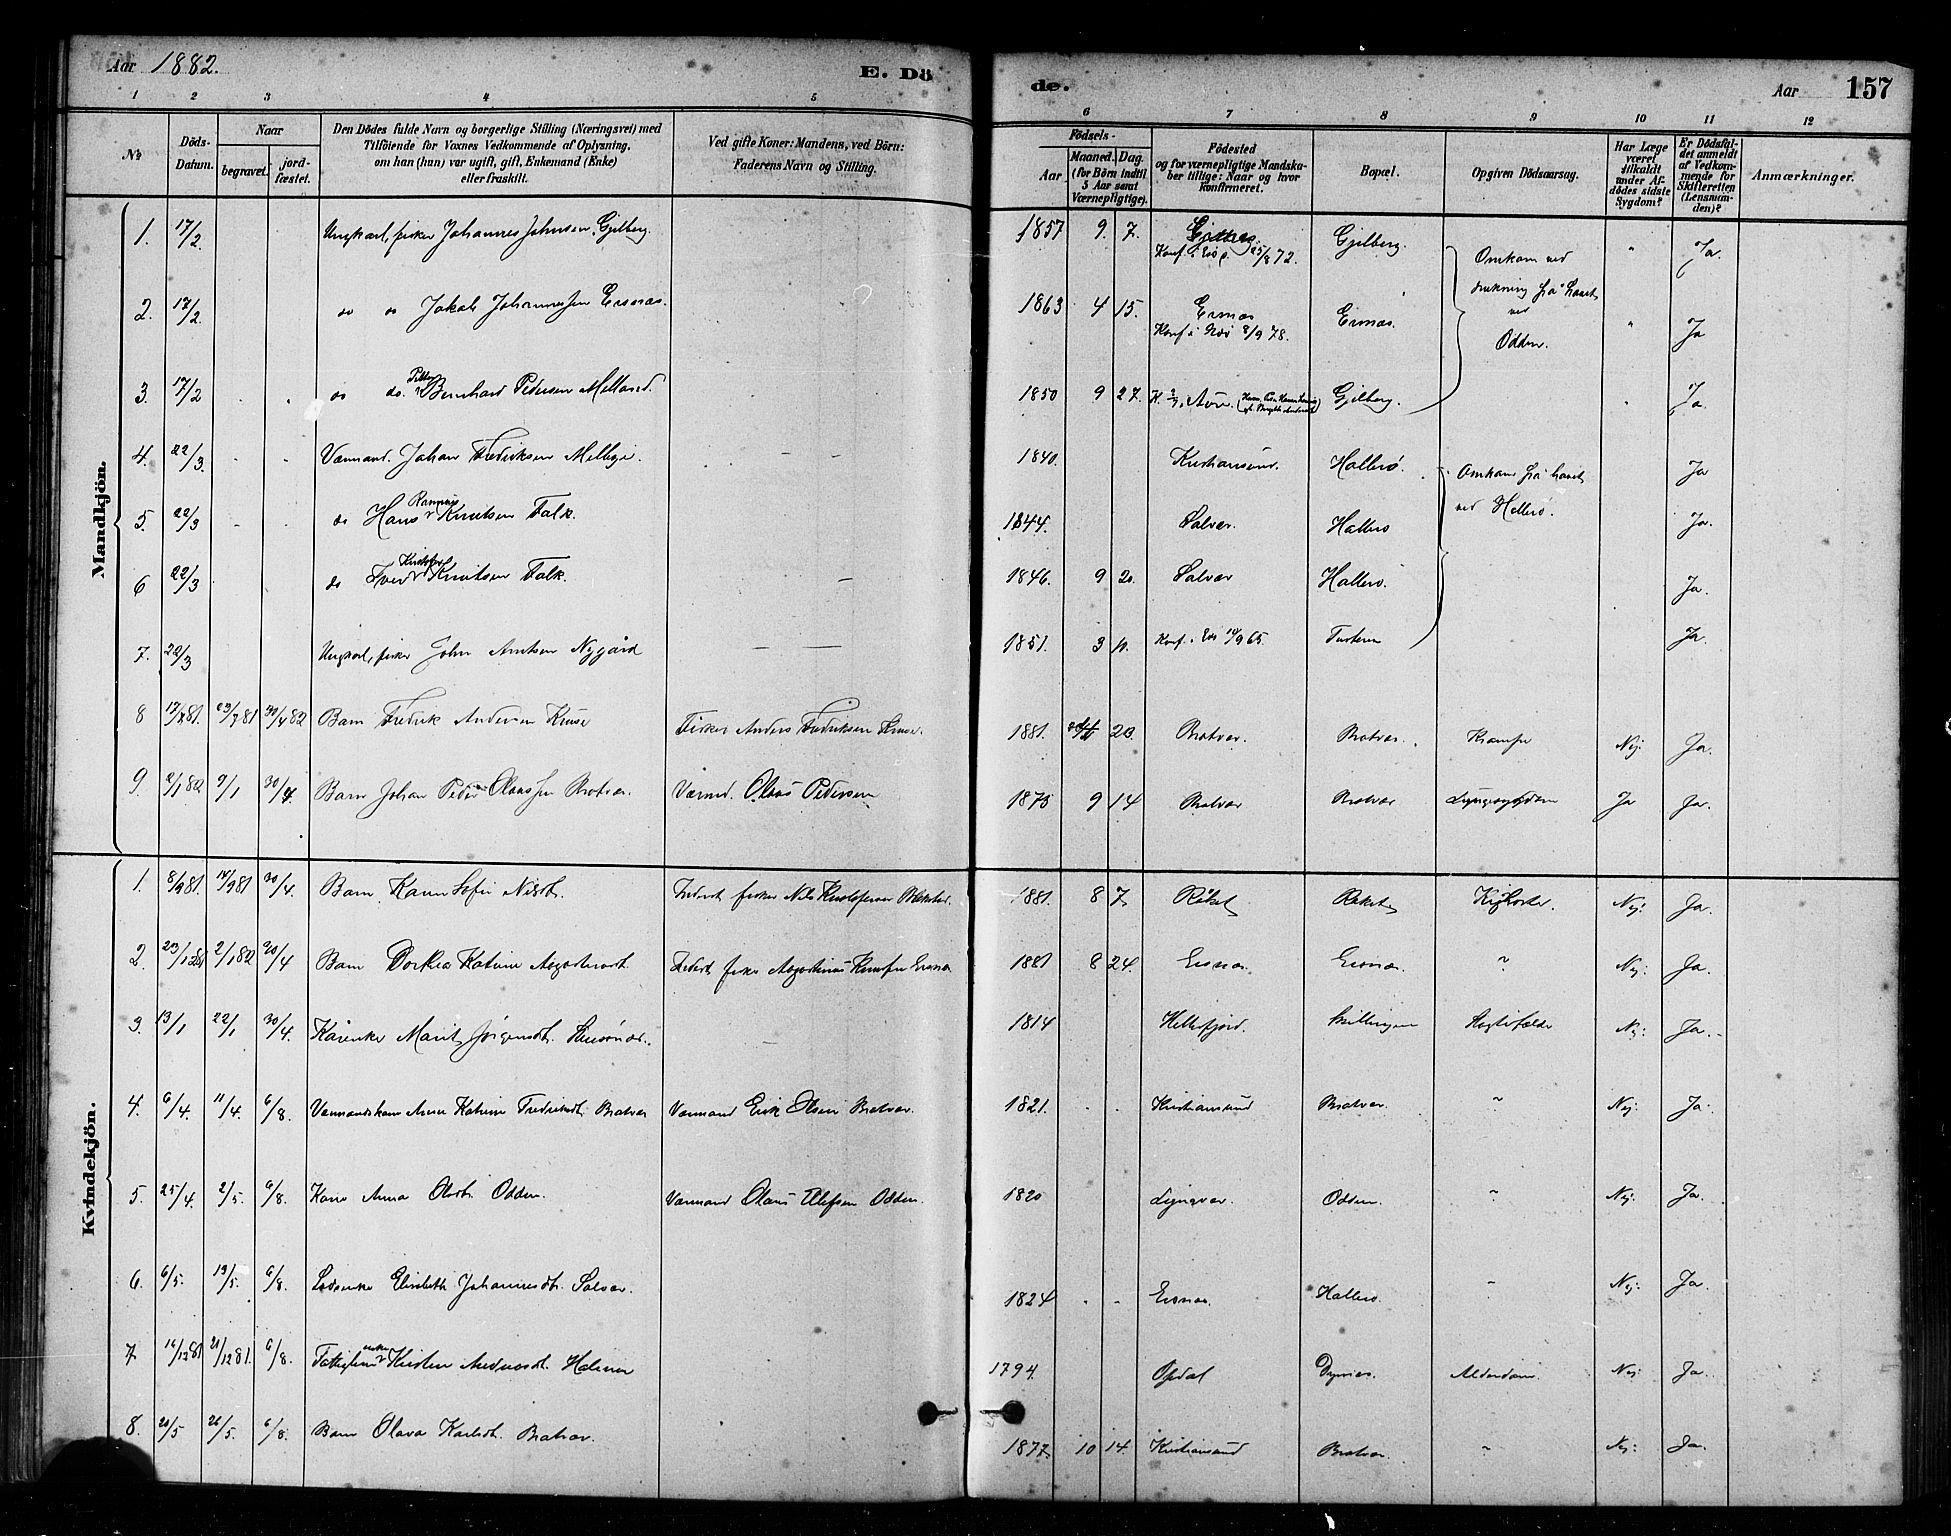 Aar 1882.
E. Dö
de.
Aar
157
1 2 3 4 5 6 7 8 9 10 11 12
№
Döds-Datum.
Naar
begravet.
jord-fæstet.
Den Dödes fulde Navn og borgerlige Stilling (Næringsvei) med
Tilföiende for Voxnes Vedkommende af Oplysning,
om han (hun) var ugift, gift, Enkemand (Enke)
eller fraskilt.
Ved gifte Koner: Mandens, ved Börn:
Faderens Navn og Stilling.
Födsels-
Aar
Maaned. Dag.
(for Börn indtil
5 Aar samt
Værnepligtige).
Födested
og for værnepligtige Mandska-
ber tillige: Naar og hvor
konfirmeret.
Bopæl.
Opgiven Dödsaarsag.
Har Læge
været
tilkaldt
under Af-
dödes sidste
Sygdom?
Er Dödsfal-
det anmeldt
af Vedkom-
mende for
Skifteretten
(Lensman-
den)?
Anmærkninger.
Mandkjön.
1. 17/2 Ungkarl, fisker Johannes Johnsen Gjelberg. 1857 9. 7. Konf. 25/8 72. Gjelberg. Omkom ved drukning på havet ved Odden. " Ja.
2. 17/2. do do Jakob Johannessen Ersnæs. 1863 4 15. Ersnæs Konf. i 8/9 78. Ersnæs. " Ja
3. 17/2 do do. Petter Bernhard Pedersen Melland. 1850 9 27. Gjelberg. Ja.
4. 22/3. Værmand. Johan Fredriksen 1840. Kristiansund. Hallerø. Omkom på havet ved Hallerø. Ja
5. 22/3 do Hans Rasmus Knutsen Falk. 1844. Salvær. Hallerø Ja.
6 22/3 do Iver Kristofer Knutsen Falk. 1846. 9 20. Salvær Hallerø. Ja.
7. 22/3 Ungkarl, fisker John Arntsen Nygård 1851. 3 Konf. i 14/9 65. Tusteren Ja.
8 17/7 81. 23/7 81 30/4 82 Barn Fredrik Andersen Kruse Fisker Anders Fredriksen Kruse. 1881. 23 Bratvær. Bratvær. Krampe Nej. Ja.
9. 2/1 82 9/1 30/4. Barn Johan Peder Olaussen Bratvær Værmd. Olaus Pedersen 1873 9 14 Bratvær Bratvær Lungesygdom Ja Ja.
Kvindekjön.
1. 8/9 81. 14/9 81 30/4. Barn Karen Sofie Nilsdt. Inderst fisker Nils Kristofersen 1881. 8 7 Røkst Røkst Kighoste. Nej. Ja.
2. 23/12 81 2/1 82 30/4 Barn Dorkea Katrine Inderst fisker Ersnæs 1881 8 24. Ersnæs. Ersnæs. " Nej: Ja.
3. 13/1 22/1 30/4. Kårenke Marit Jørgensdt. 1814 Hellesfjord. Skillingen Nej: Ja.
4. 6/4. 11/4. 6/8. Værmandskone Anne Katrine Fredriksdt. Bratvær Værmand Erik Olsen Bratvær. 1821. Kristiansund Bratvær. " Nej: Ja.
5. 25/4. 2/5. 6/8. Kone Anna Olsdt. Odden. Værmand Olaus Ellefsen Odden. 1820 Lyngvær. Odden. " Nej. Ja.
6. 6/5. 13/5. 6/8. Lodsenke Elisabeth Johannesdt. Salvær. 1824 Ersnæs. Hallerø. " Nej. Ja.
7. 14/12 81 21/12 81. 6/8. Fattiglemenke Kirsten Andersdt. 1794. Opdal Dyrnes. Alderdom. Nej. Ja.
8. 20/5 26/5. 6/8. Barn Olava Karlsdt. Bratvær. 1877 10 14. Kristiansund Bratvær " Nej: Ja.